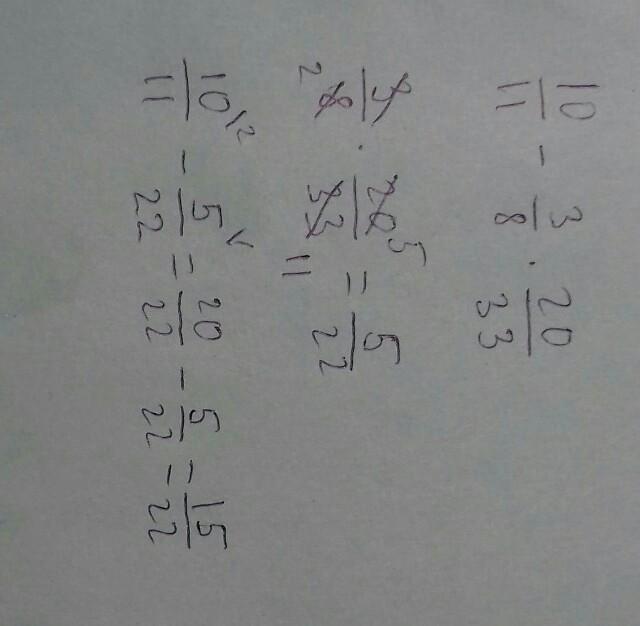 10/11 - 3/8 · 20/33
3/8 2 · 20/33 5 11 = 5/22
10/11 \2 - 5/22 \1 = 20/22 - 5/22 = 15/22